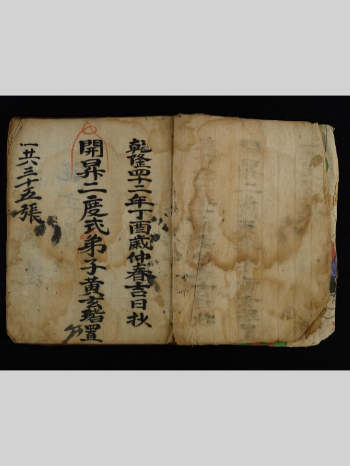 乾隆四十二年丁酉歲仲春吉日抄
開昇二度式弟子黃玄瑨置
一共六三十五張